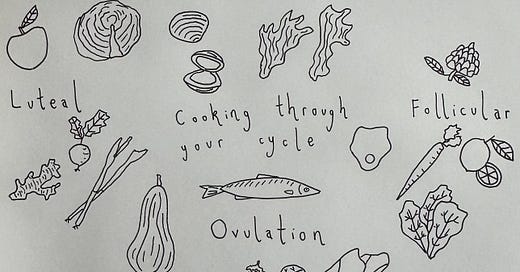 Luteal
Cooking through
your cycle
Follicular
Ovulation